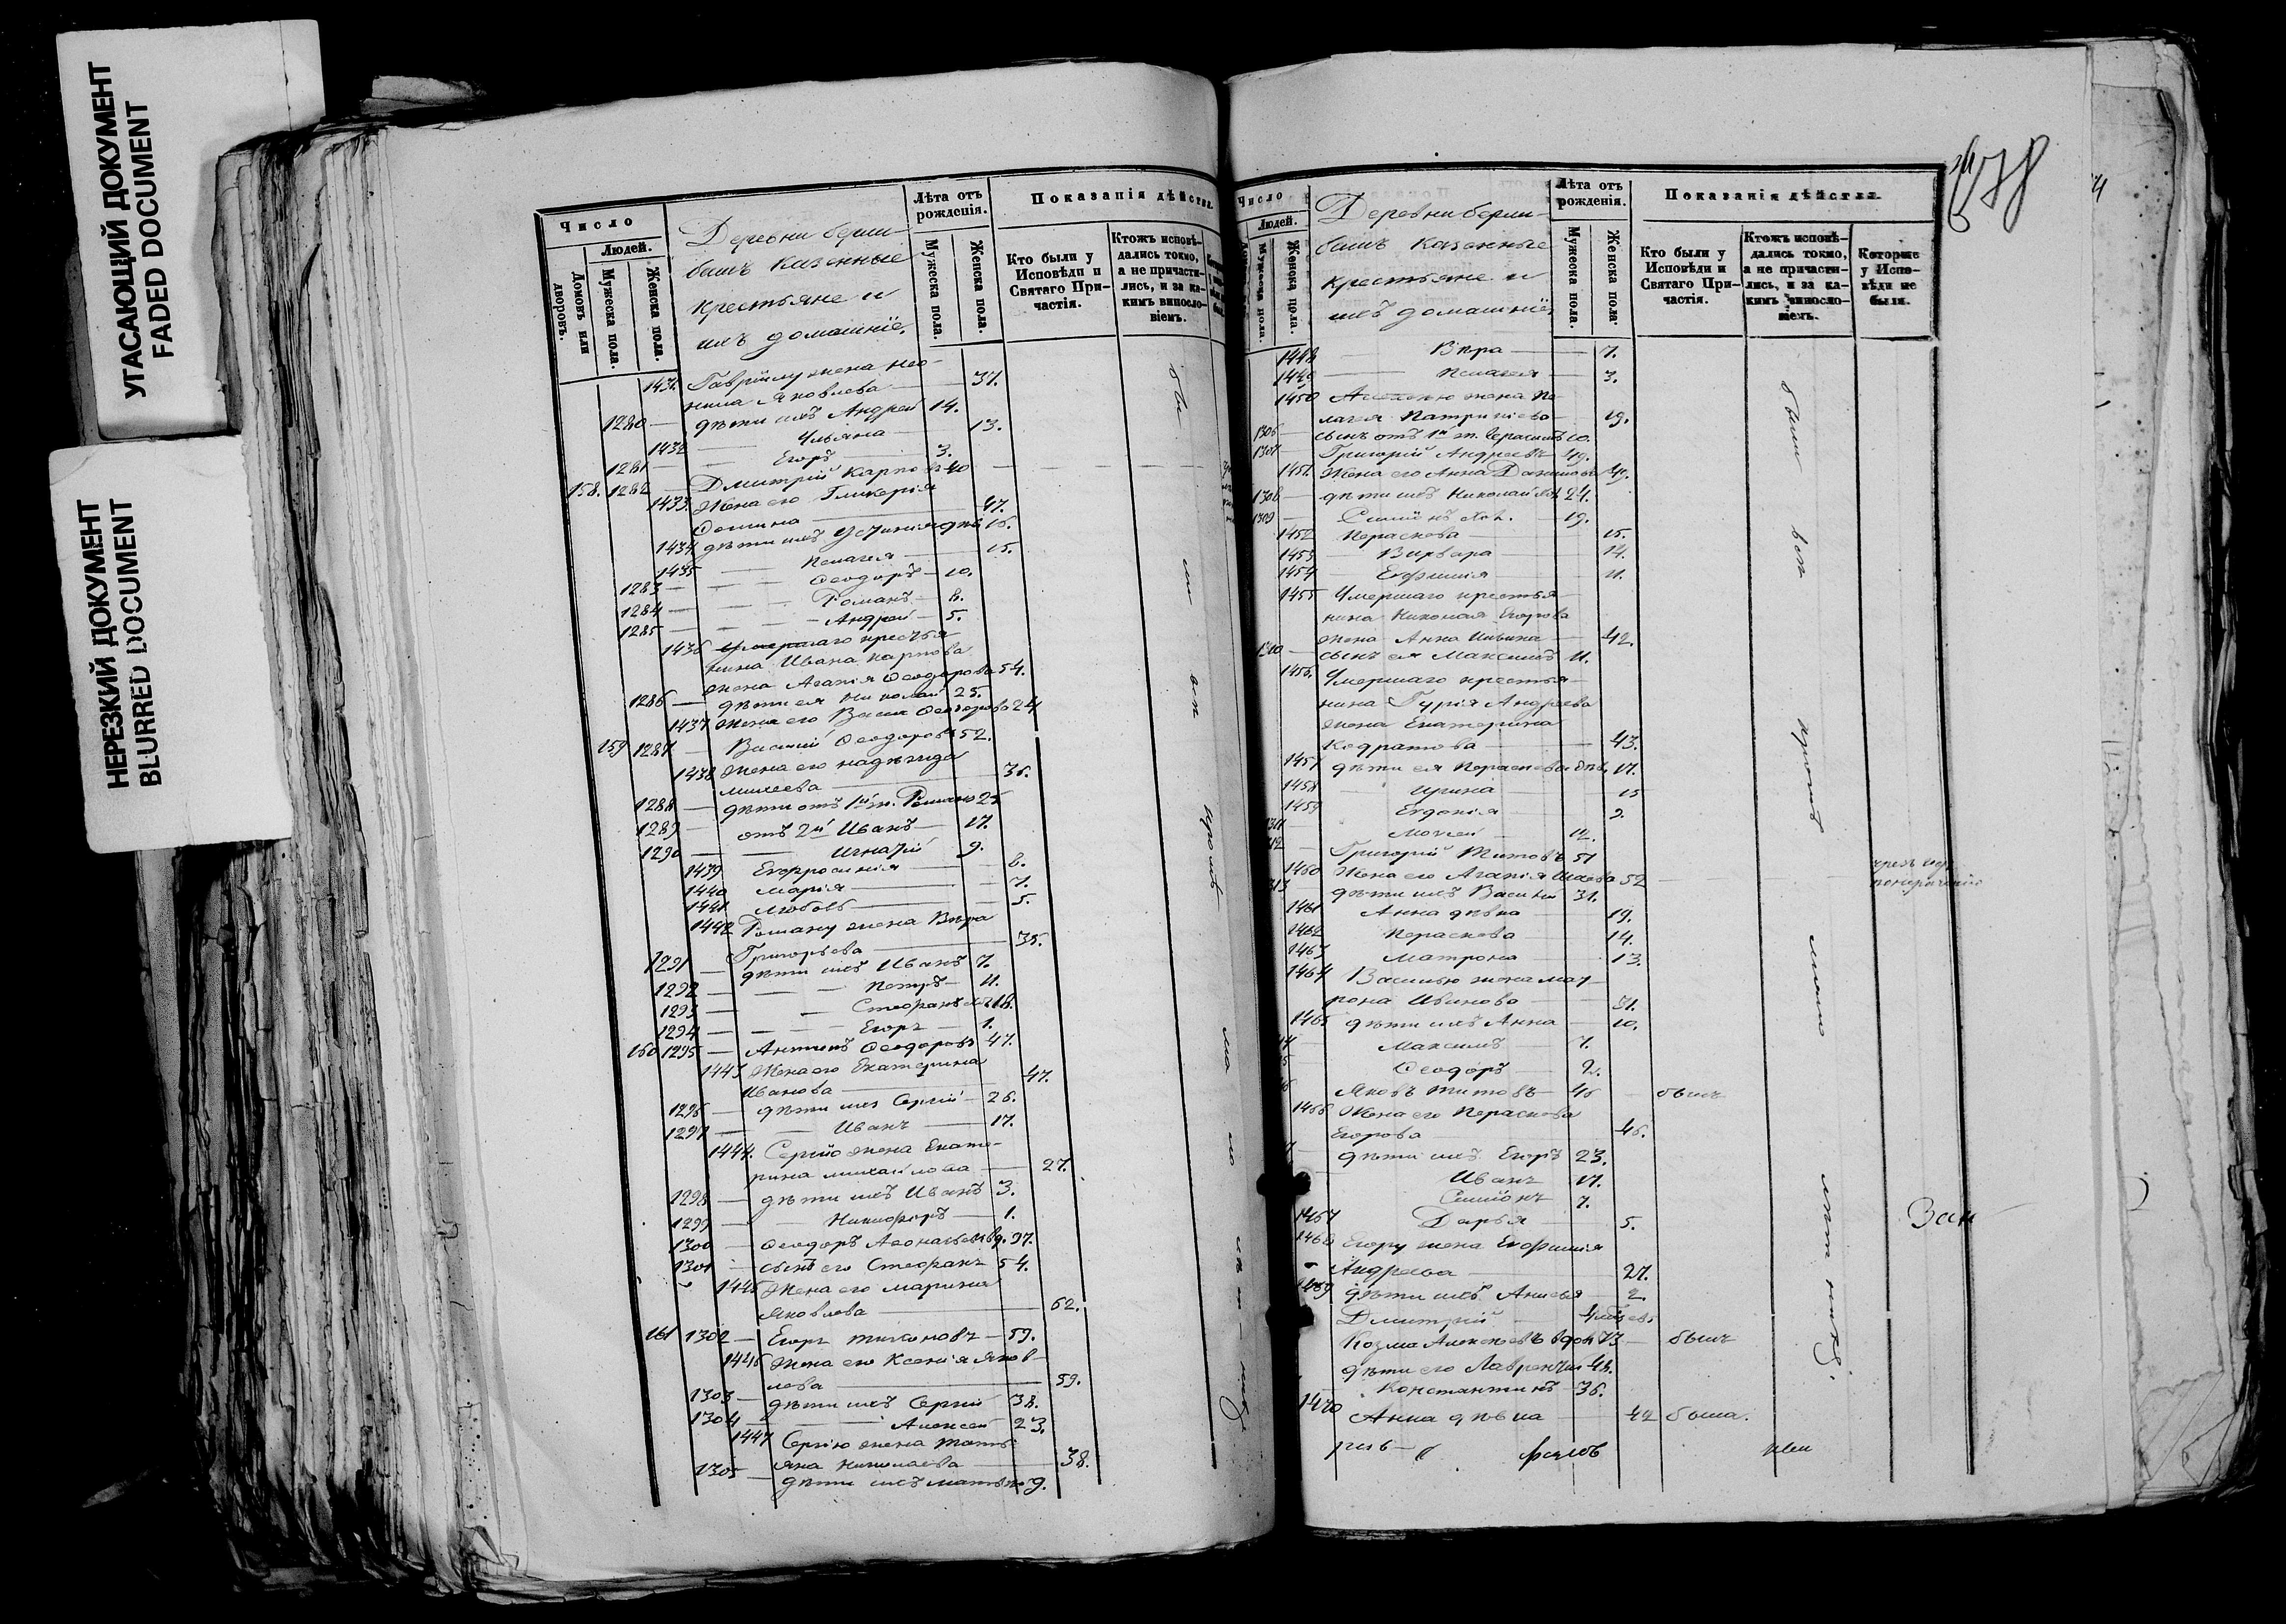 УГАСАЮЩИЙ ДОКУМЕНТ
FADED DOCUMENT
НЕРЕЗКИЙ ДОКУМЕНТ
BLURRED DOCUMENT
Число
Людей.
Домовъ или дворовъ.
Мужеска пола.
Женска пола.
Деревни берли-
башъ казенные
крестьяне и
ихъ домашніе.
Лѣта отъ рожденія.
Мужеска пола.
Женска пола.
Показанія дѣйства.
Кто были у Исповѣди и Святаго Причастія.
Ктожъ исповѣдались токмо, а не причастились, и за какимъ винословіемъ.
1431. Гаврiилу жена Нео-
нила Яковлева 37.
1280 — дѣти ихъ Андрей 14.
1432 — Ульяна 13.
1281 — Егоръ 3.
158. 1282 — Дмитрій Карповъ 40
1433. Жена его Гликерія
Фомина 47.
1434 дѣти ихъ Устинія дѣв 16.
1435 Пелагея 15.
1283 — Ѳеодоръ 10.
1284 — Романъ 8.
1285 — Андрей 5.
1436 Умершаго крестья-
нина Ивана Карпова
жена Агапія Ѳеодорова 54.
1286 — дѣти ея Николай 25.
1437 Жена его Васса Ѳеодорова 24
159 1287 — Василій Ѳеодоровъ 52.
1438 Жена его Надѣжда
Михеева 36.
1288 — дѣти отъ 1й ж. Романъ 25
1289 — отъ 2й Иванъ 17.
1290 — Игнатій 9.
1439 Евфросинія 8.
1440 Марія 7.
1441 Любовь 5.
1442 Роману жена Вѣра
Григорьева 35.
1291 — дѣти ихъ Иванъ 7.
1292 — Петръ 11.
1293 — Стефанъ 18.
1294 — Егоръ 1.
160 1295 — Антипъ Ѳеодоровъ 47.
1443 Жена его Екатерина
Иванова 47.
1296 — дѣти ихъ Сергій 26.
1297 — Иванъ 17.
1444. Сергію жена Екате-
рина Михайлова 27.
1298 — дѣти ихъ Иванъ 3.
1299 — Никифоръ 1.
1300 — Ѳеодоръ Аѳонасьевъ вд. 97.
1301 — сынъ его Стефанъ 54.
1445 Жена его Марина
Яковлева 62.
161 1302 — Егоръ Тихоновъ 59.
1446 Жена его Ксенія Яков-
лева 59.
1303 — дѣти ихъ Сергій 38.
1304 — Алексей 23.
1447 Сергію жена Тать-
яна Николаева 38.
1305 — дѣти ихъ Матвѣй 9.
Число
Людей.
Мужеска пола.
Женска пола.
Деревни берли-
башъ казенные
крестьяне и
ихъ домашніе
Лѣта отъ рожденія.
Мужеска пола.
Женска пола.
Показанія дѣйства.
Кто были у Исповѣди и Святаго Причастія.
Ктожъ исповѣдались токмо, а не причастились, и за какимъ винословіемъ.
Которые у Исповѣди не были.
1448 Вѣра 7.
1449 Пелагея 3.
1450 Алексѣю жена Пе-
лагея Патрикіева 19.
1306 — сынъ отъ 1й ж. Герасимъ 10.
1307 Григорій Андреевъ 49.
1451. Жена его Анна Данилова 49.
1308 — дѣти ихъ Николай 24.
1309 — Симіонъ 19.
1452 Пераскева 15.
1453 Варвара 14.
1454 Евфимія 11.
1455 Умершаго крестья-
нина Николая Егорова
жена Анна Ильина 42.
1310 — сынъ ея Максимъ 11.
1456. Умершаго крестья-
нина Гурія Андреева
жена Екатерина
Кодратова 43.
1457 дѣти ея Пераскева дѣв. 17.
1458 Ирина 15
1459 Евдокія 9.
1311 Моисей 12.
1312 Григорій Титовъ 51
1460 Жена его Агапія 52
1313 дѣти ихъ Василій 31.
1461 Анна дѣвка 19.
1462 Пераскева 14.
1463 Матрона 13.
1464 Василью жена Мат-
рона Иванова 31.
1465 дѣти ихъ Анна 10.
Максимъ 7.
Ѳеодоръ 2.
Яковъ Титовъ 46 — былъ
1466 Жена его Пераскева
Егорова 46.
дѣти ихъ Егоръ 23.
Иванъ 17.
Симіонъ 7.
1467 Дарья 5.
1468 Егору жена Евфимія
Андреева 27.
1469 дѣти ихъ Анисья 2.
Дмитрій
Козма Алексѣевъ вдов 73 — былъ
дѣти его Лаврентій 48.
Константинъ 36.
1470 Анна дѣвка 42 была.
были всѣ кромѣ